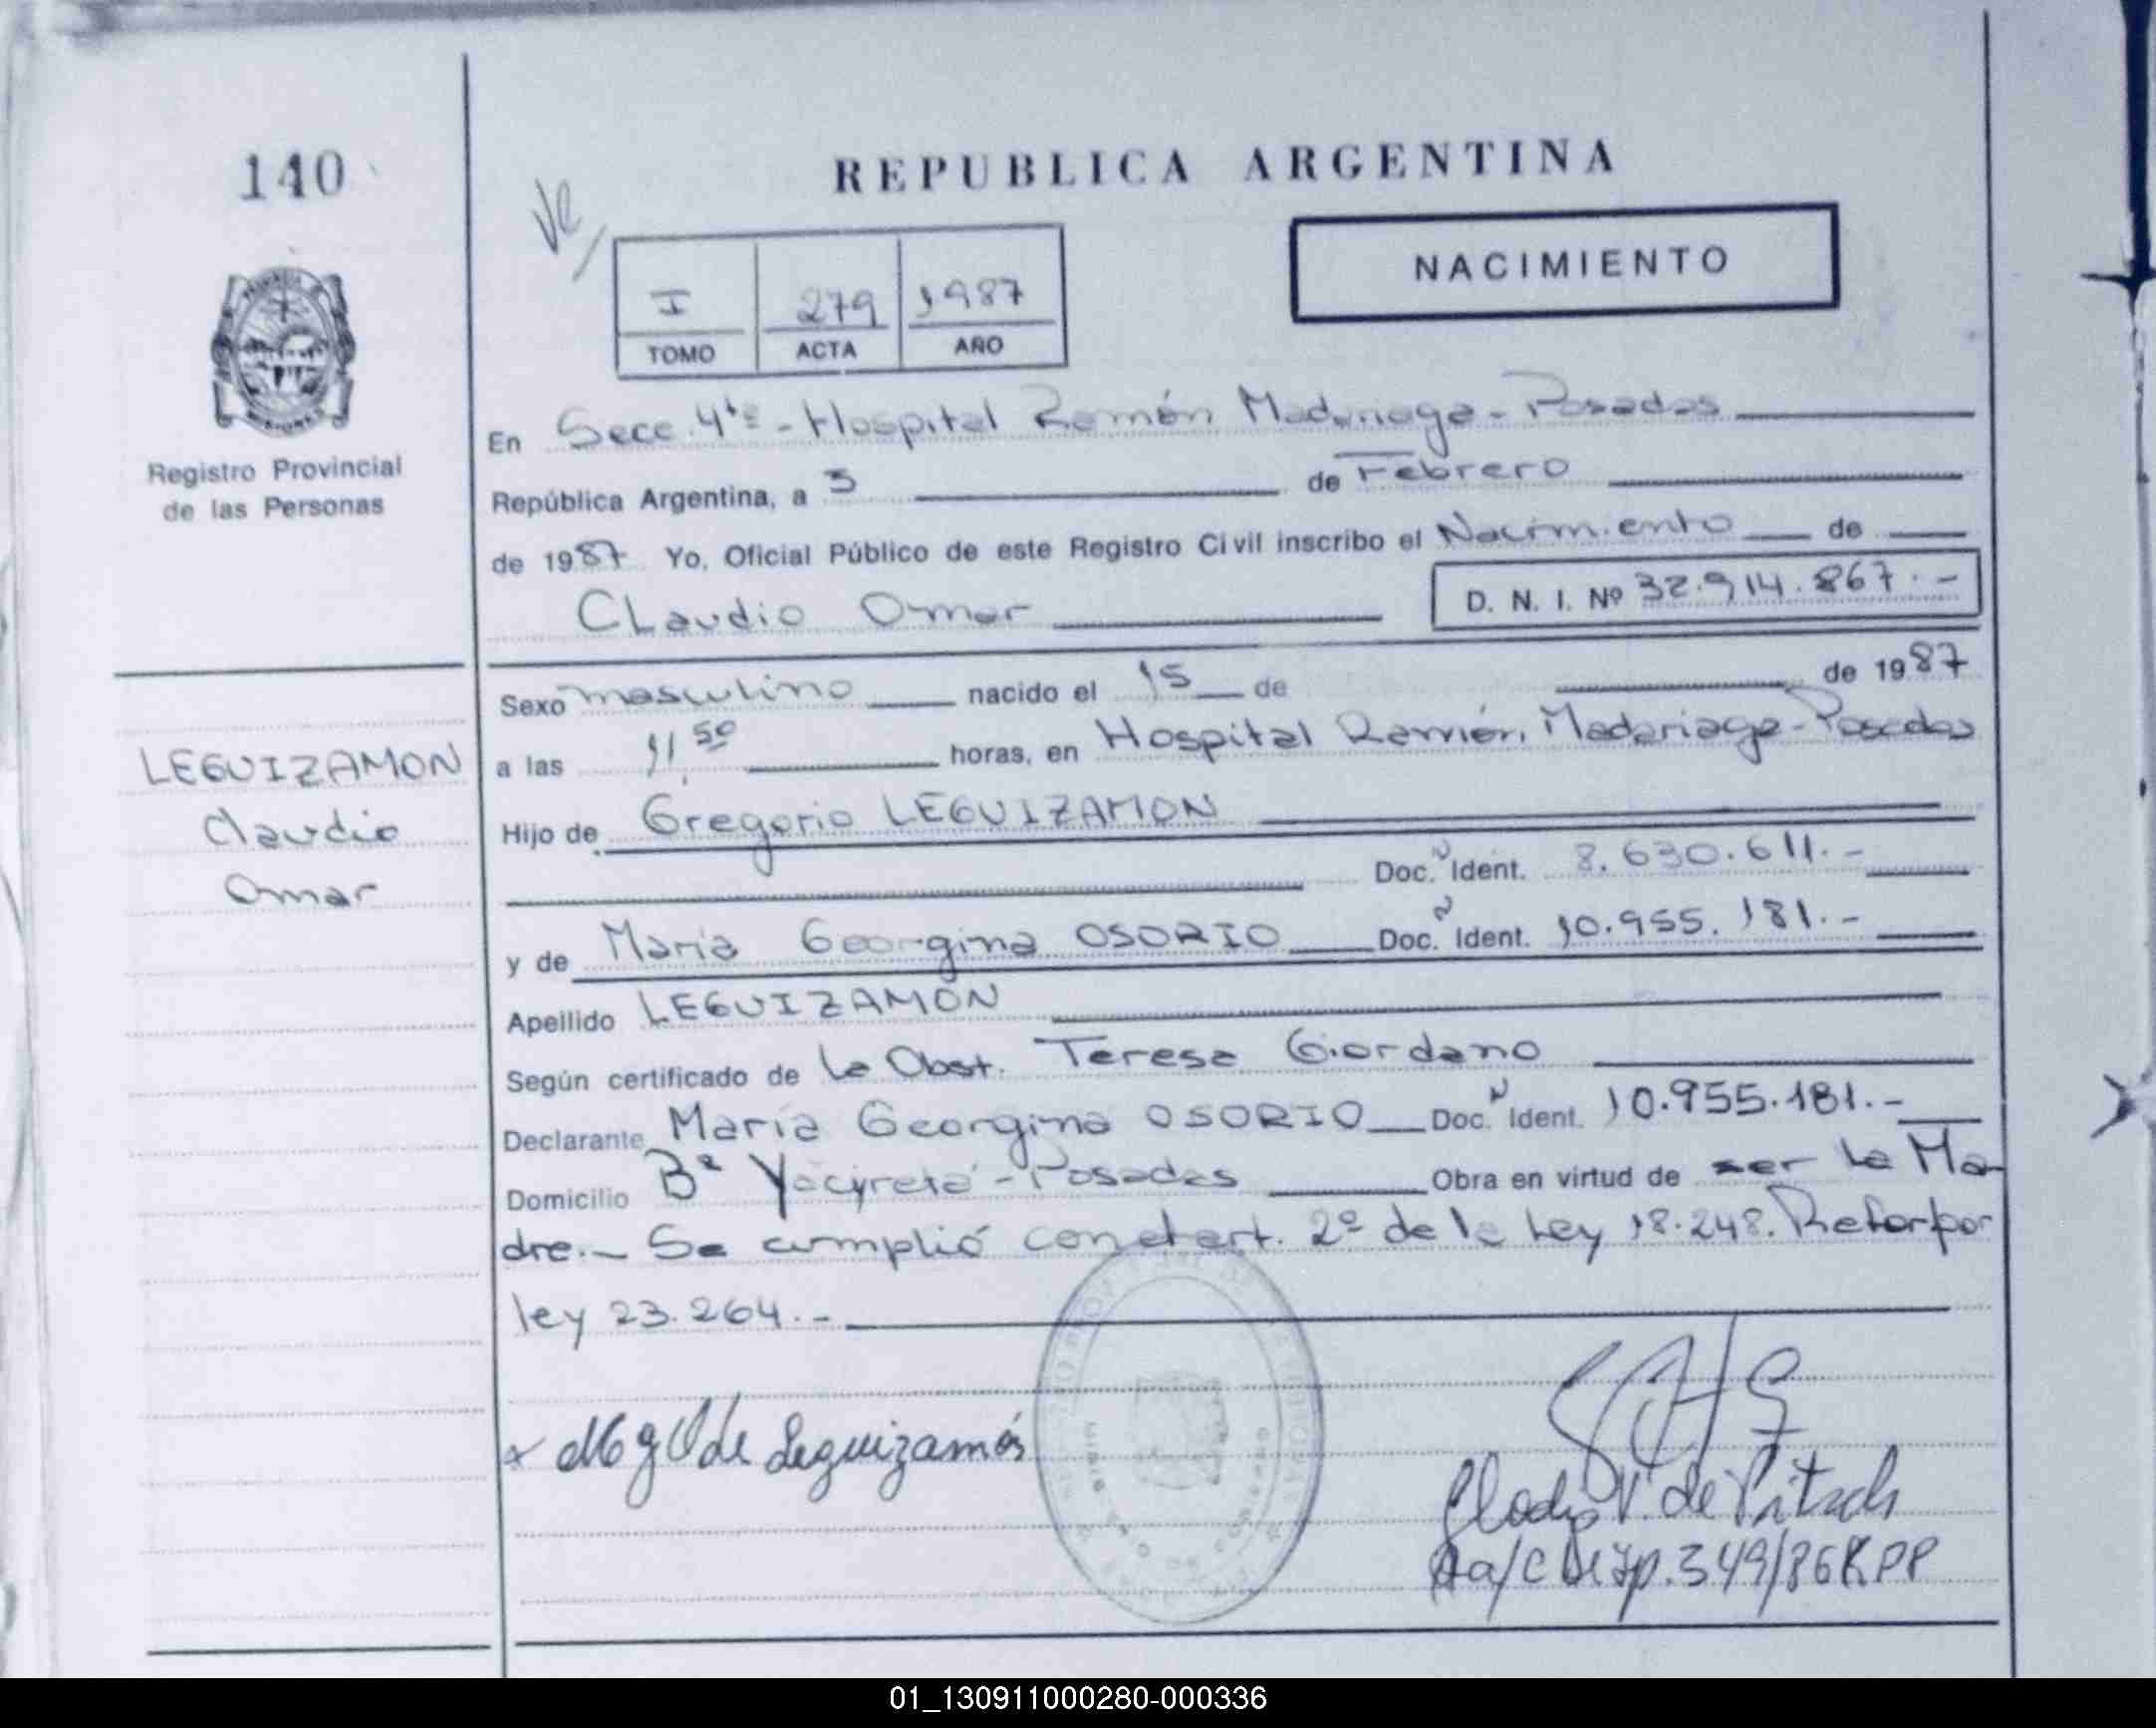 140
REPUBLICA ARGENTINA
NACIMIENTO
I 279 1987
TOMO ACTA AÑO
Registro Provincial
de las Personas
En Secc. 4ta - Hospital Ramón Madariaga - Posadas
República Argentina, a 3 de Febrero
de 1987 Yo, Oficial Público de este Registro Civil inscribo el Nacimiento de
Claudio Omar D. N. I. Nº 32.914.867.-
Sexo masculino nacido el 15 de de 1987
a las 11,50 horas, en Hospital Ramón Madariaga - Posadas
LEGUIZAMON
Claudio
Omar
Hijo de Gregorio LEGUIZAMON
Doc. Ident. 8.630.611.-
y de María Georgina OSORIO Doc. Ident. 10.955.181.-
Apellido LEGUIZAMON
Según certificado de la Obst. Teresa Giordano
Declarante María Georgina OSORIO Doc. Ident. 10.955.181.-
Domicilio Bº Yacyretá - Posadas Obra en virtud de ser la Ma-
dre.- Se cumplió con el art. 2º de la Ley 18.248. Refor por
ley 23.264.-
x M g O de Leguizamón
Gladys V. de
a/c Disp. 349/86 RPP
01_130911000280-000336